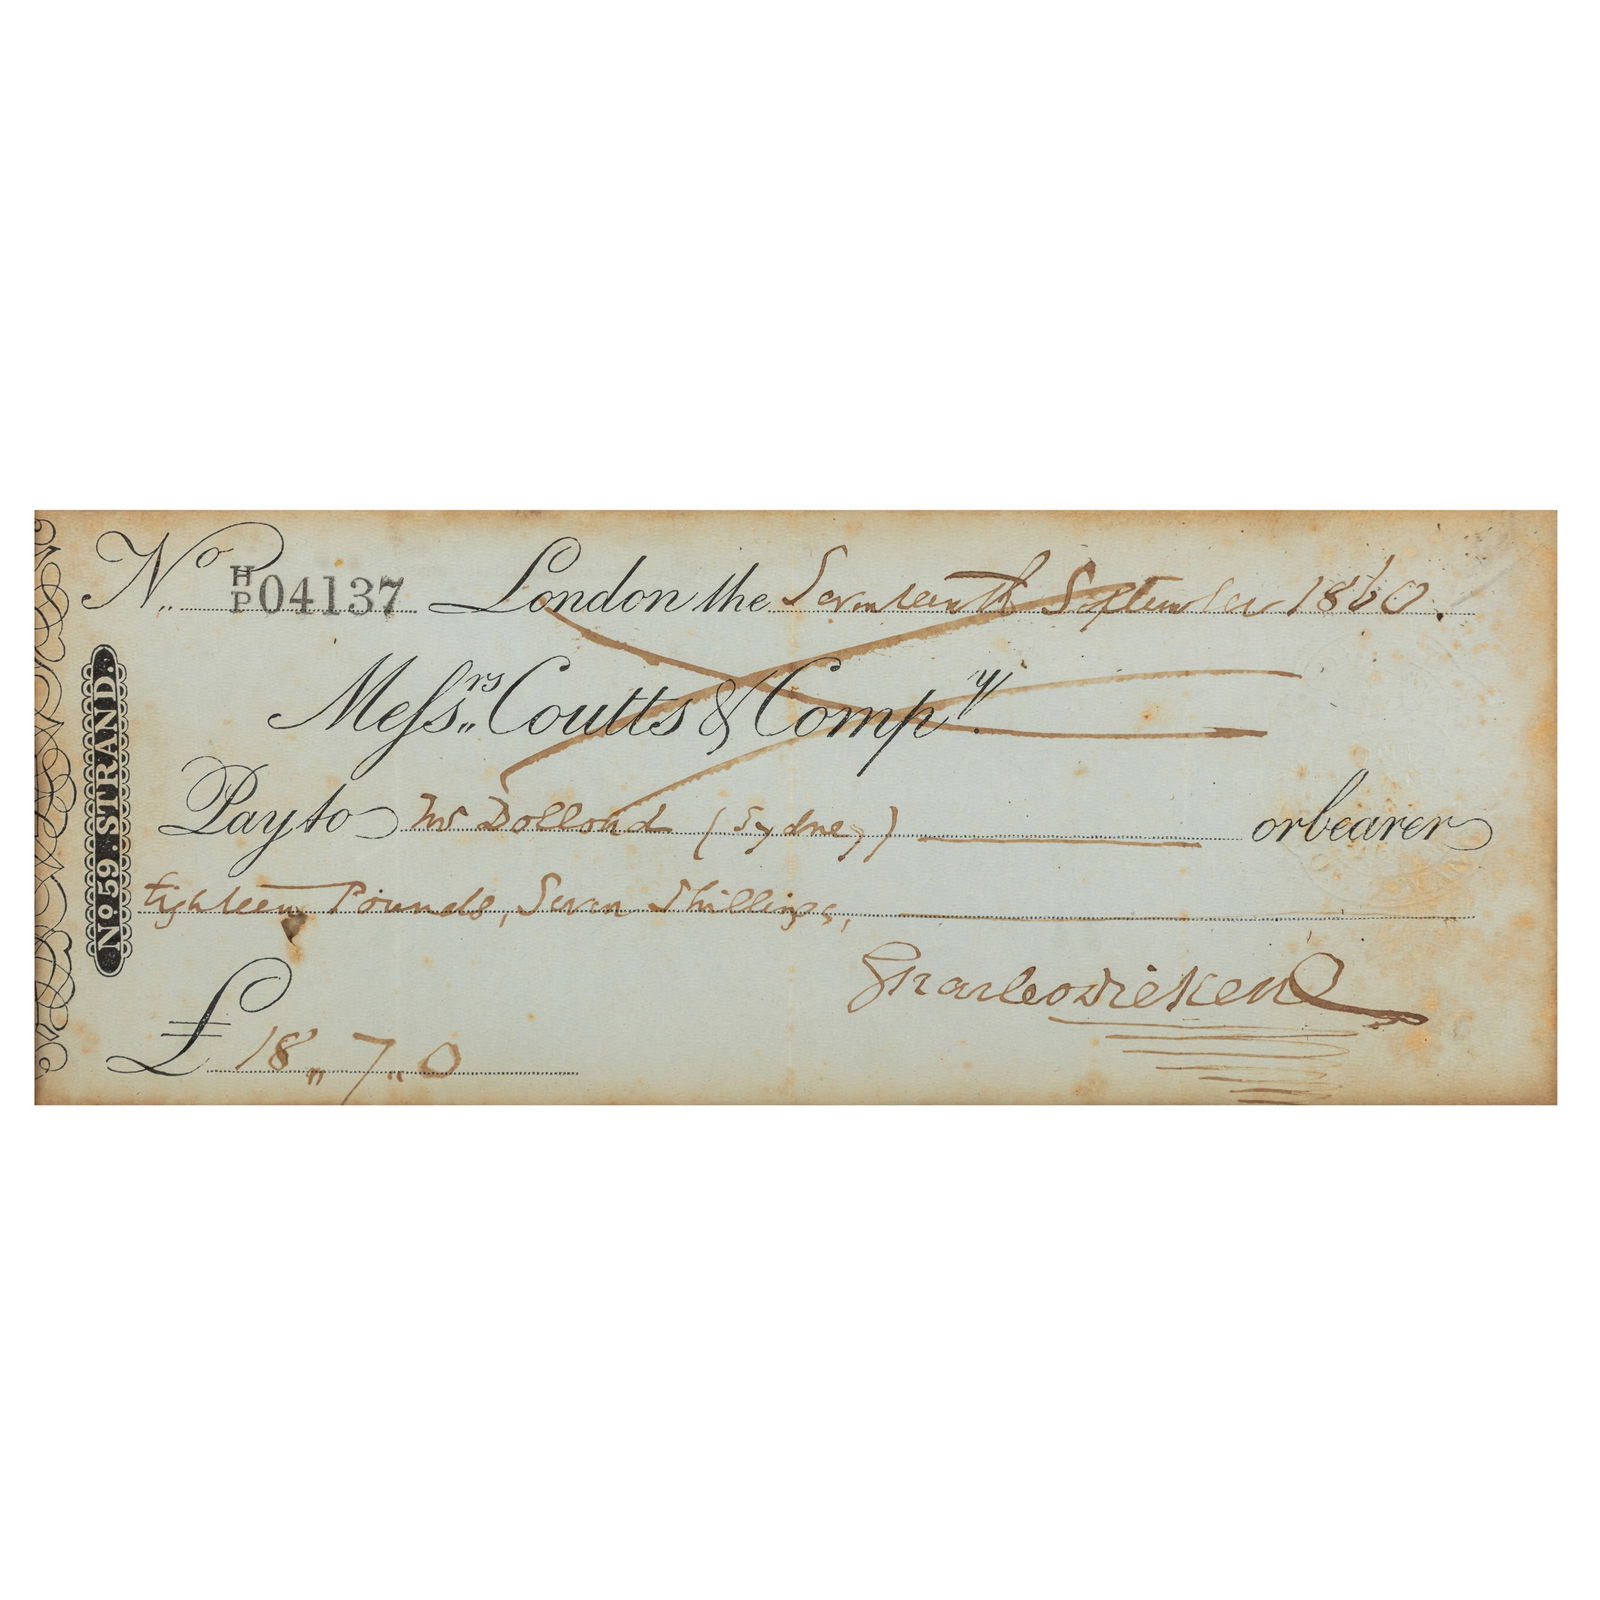 No. H/P 04137 London the Seventeenth September 1860.
Messrs. Coutts & Compy.
Pay to Mr Dollond (Sydney) or bearer
Eighteen Pounds, Seven Shillings,
Charles Dickens
£ 18 " 7 " 0
No 59. STRAND.